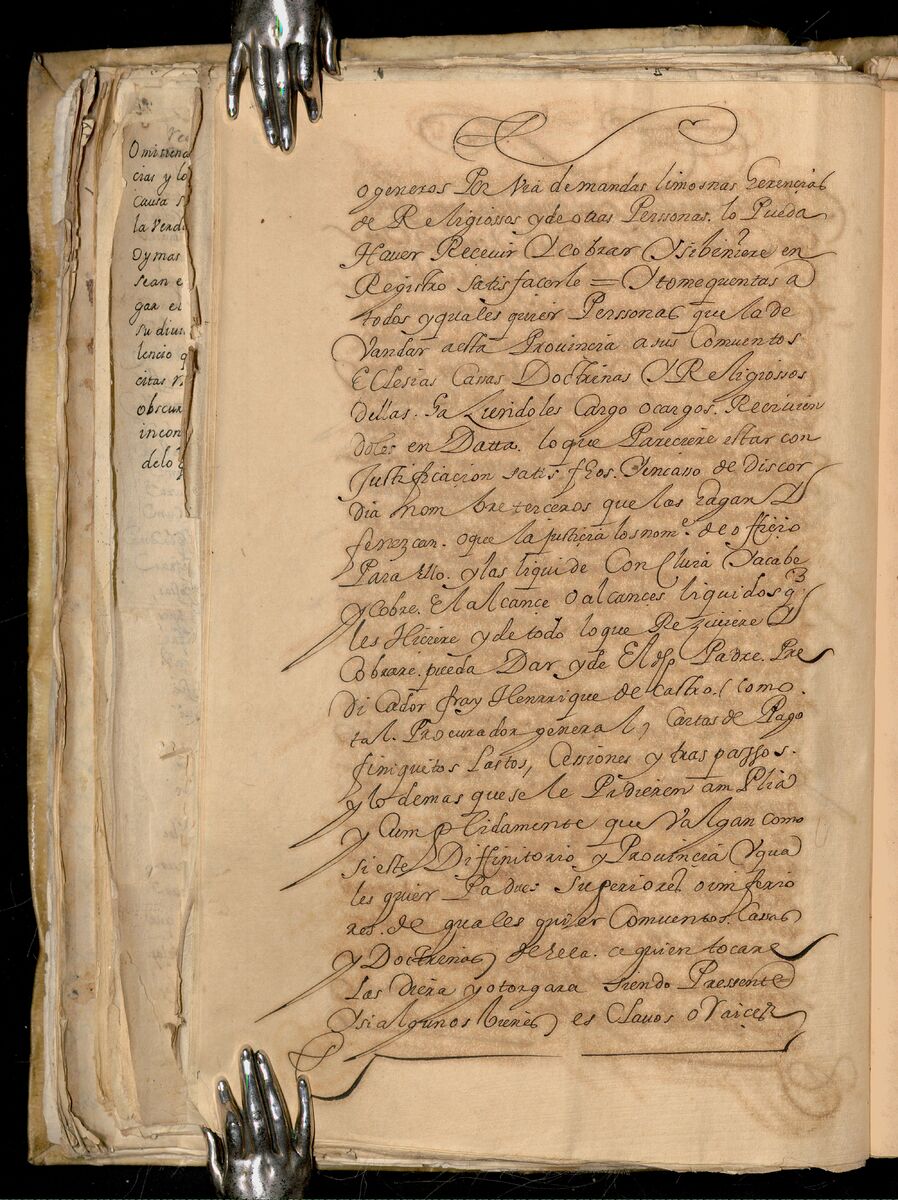 Omitien
cias y lo
Causa
la Verd
Oymas
sean e
gar en
su dium
lencio q
citas
obscur
incon
delo
ogeneros Por Via demandas limosnas herencias
de Religiossos yde otras Perssonas. lo Pueda
Haver Recevir Y cobrar Y sibeniere en
Registro satisfacerle = Y tomequentas a
todos yquales quier Perssonas que la de
Vandar aesta Provincia asus Comventos
Eclesias Cassas Doctrinas Y Religiossos
dellas. haziendoles Cargo ocargos. Reciuien
doles en Datta. lo que Pareciere estar con
Justificacion satisfhos. Yencasso de discor
dia nombre terceros que las hagan Y
fenezcan. oque la justicia losnom.e de officio
Para ello. ylas liquide Concluia Yacabe
y cobre. El alcance O alcances liquidos q.
les Hiciere yde todo loque Reziviere Y
Cobrare. pueda Dar yde El dho Padre. Pre
dicador fray Henrrique de castro. (como.
tal. Procurador general) Cartas de Pago
finiquitos Lastos, Cessiones y traspassos.
y lo demas quese le Pidieren amPlia
y Cumplidamente que Valgan como
si este Diffinitorio y Provincia Yqua
les quier Padres Superiores oinferio
res. de quales quier Comventos. Cassas
y Doctrinas de ella. aquien tocare
Las diera yotorgara siendo Pressente
Y si algunos bienes esclavos o Raices